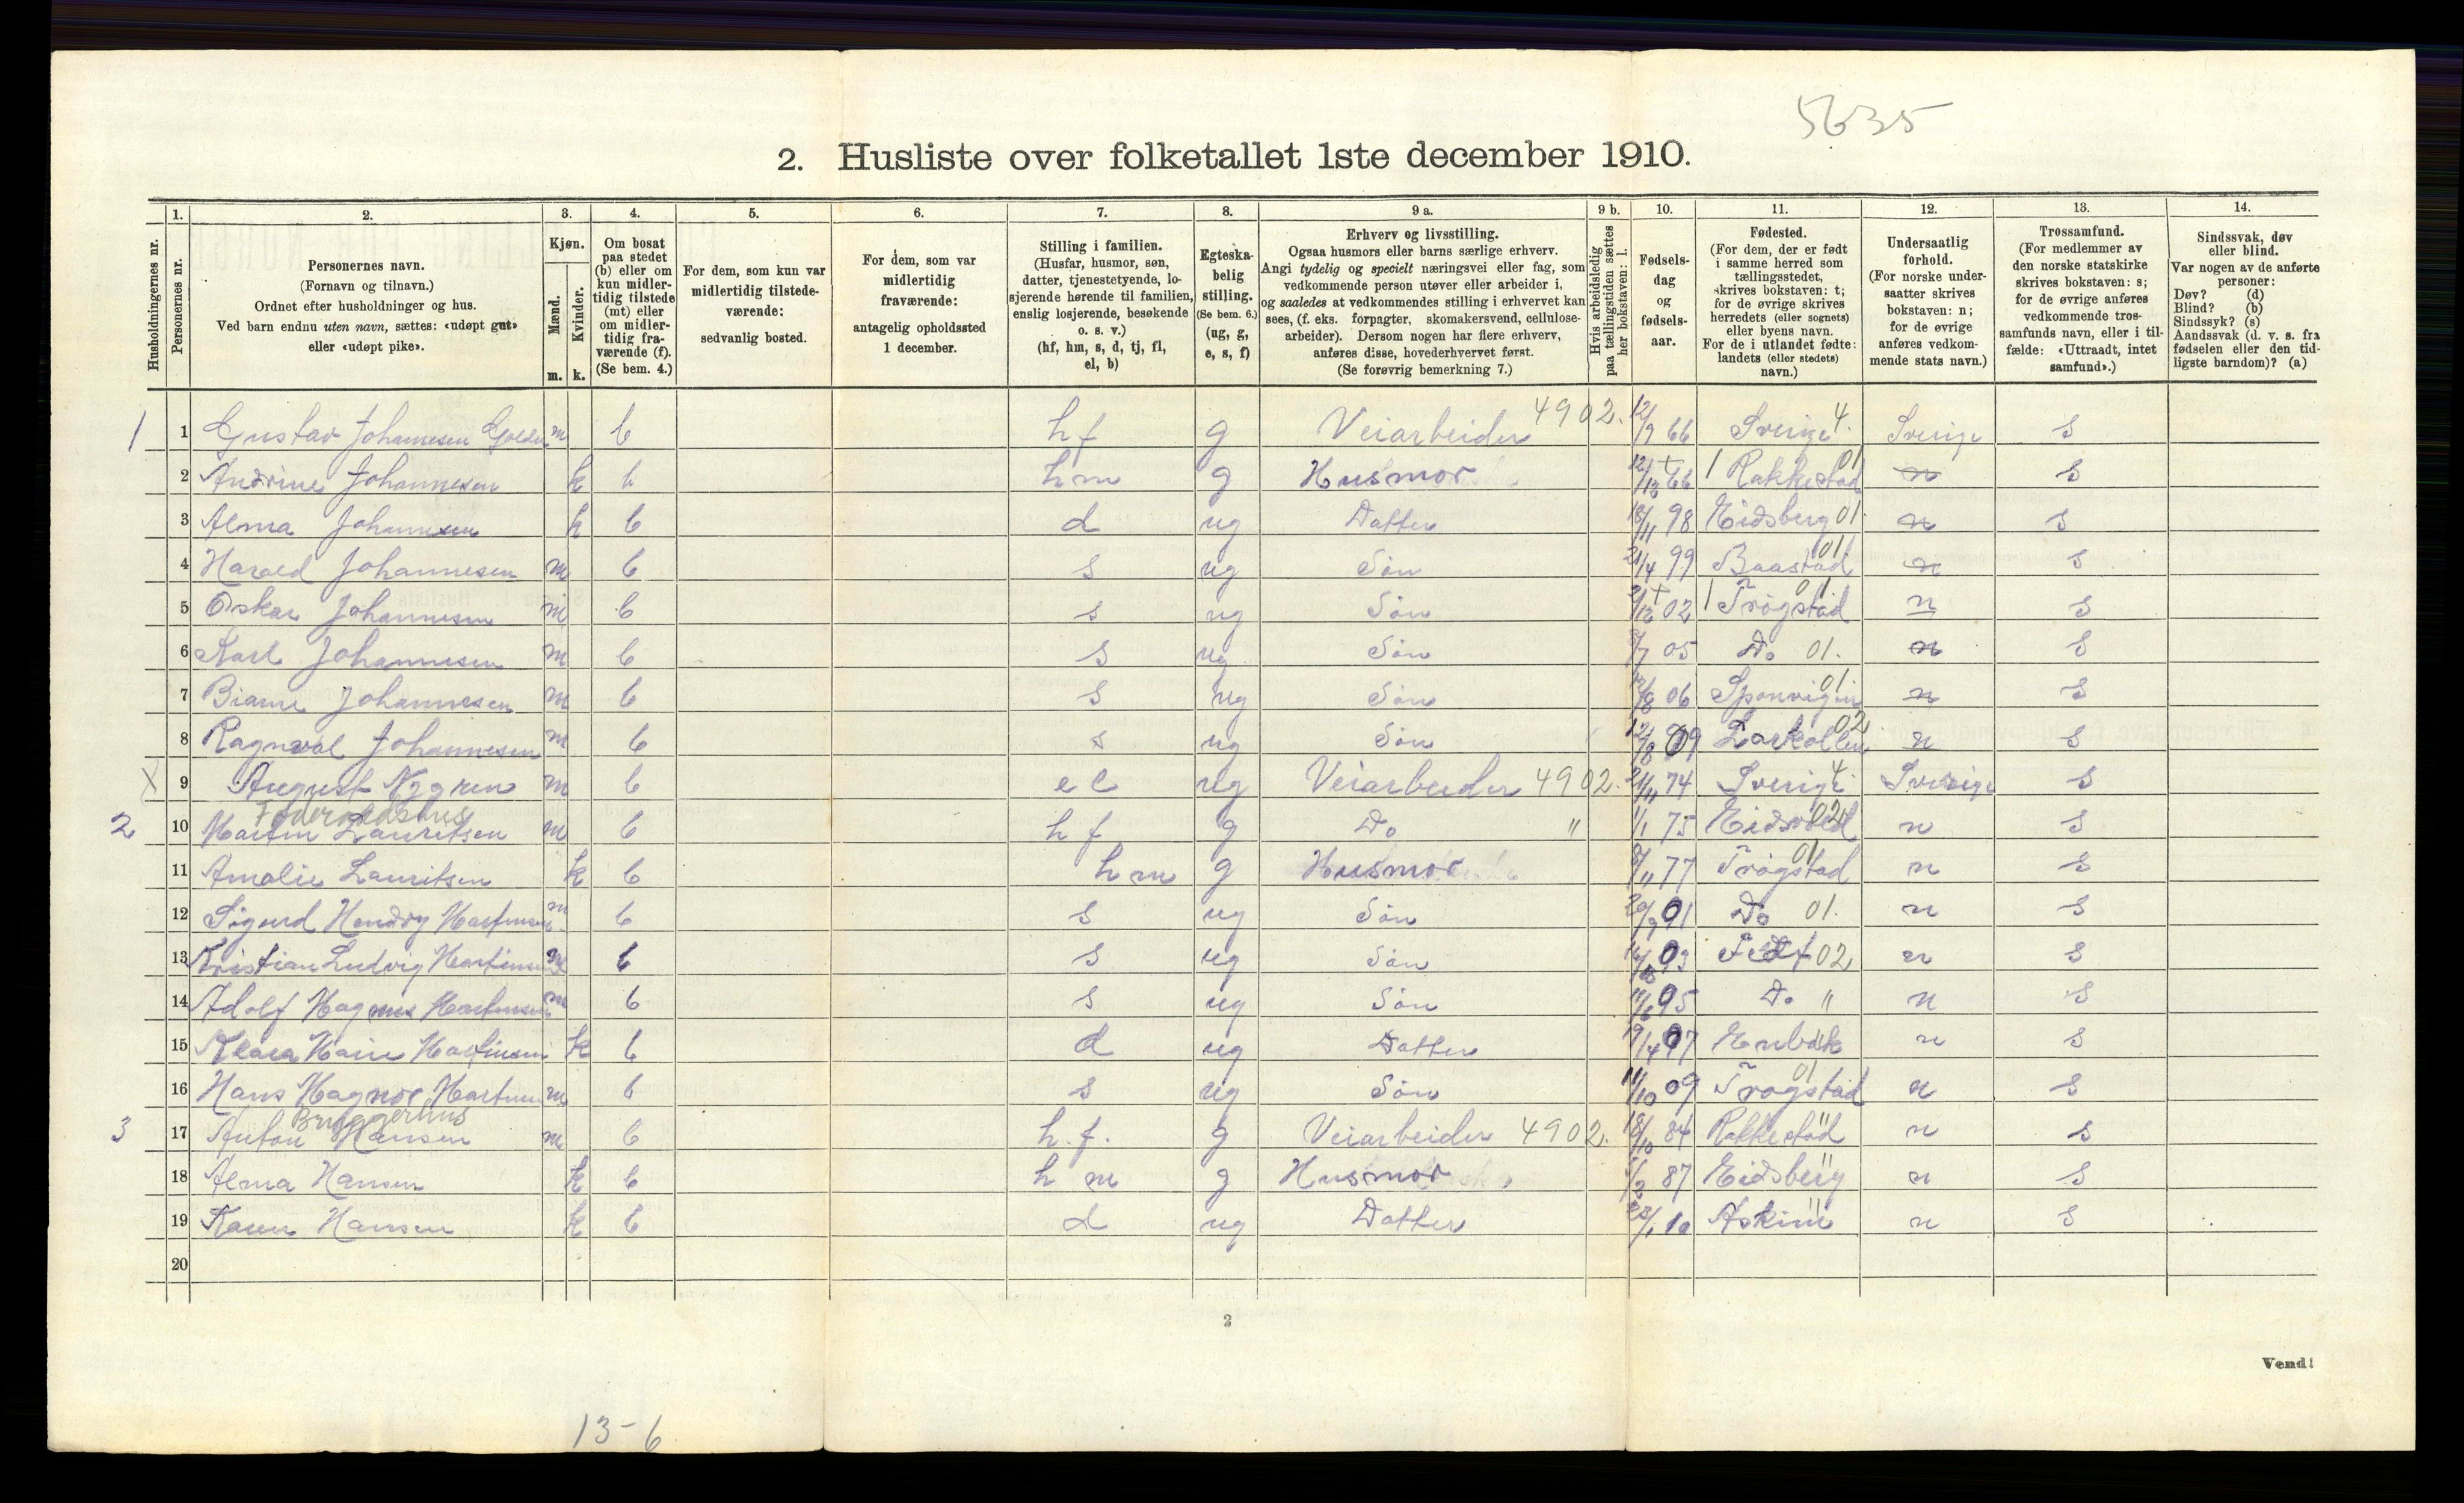 5635
2. Husliste over folketallet 1ste december 1910.
Husholdningernes nr.
1. Personernes nr.
2. Personernes navn. (Fornavn og tilnavn.) Ordnet efter husholdninger og hus. Ved barn endnu uten navn, sættes: «udøpt gut» eller «udøpt pike».
3. Kjøn. Mænd. m. Kvinder. k.
4. Om bosat paa stedet (b) eller om kun midlertidig tilstede (mt) eller om midlertidig fraværende (f). (Se bem. 4.)
5. For dem, som kun var midlertidig tilstedeværende: sedvanlig bosted.
6. For dem, som var midlertidig fraværende: antagelig opholdssted 1 december.
7. Stilling i familien. (Husfar, husmor, søn, datter, tjenestetyende, losjerende hørende til familien, enslig losjerende, besøkende o. s. v.) (hf, hm, s, d, tj, fl, el, b)
8. Egteskabelig stilling. (Se bem. 6.) (ug, g, e, s, f)
9 a. Erhverv og livsstilling. Ogsaa husmors eller barns særlige erhverv. Angi tydelig og specielt næringsvei eller fag, som vedkommende person utøver eller arbeider i, og saaledes at vedkommendes stilling i erhvervet kan sees, (f. eks. forpagter, skomakersvend, cellulosearbeider). Dersom nogen har flere erhverv, anføres disse, hovederhvervet først. (Se forøvrig bemerkning 7.)
9 b. Hvis arbeidsledig paa tællingstiden sættes her bokstaven: l.
10. Fødselsdag og fødselsaar.
11. Fødested. (For dem, der er født i samme herred som tællingsstedet, skrives bokstaven: t; for de øvrige skrives herredets (eller sognets) eller byens navn. For de i utlandet fødte: landets (eller stedets) navn.)
12. Undersaatlig forhold. (For norske undersaatter skrives bokstaven: n; for de øvrige anføres vedkommende stats navn.)
13. Trossamfund. (For medlemmer av den norske statskirke skrives bokstaven: s; for de øvrige anføres vedkommende trossamfunds navn, eller i tilfælde: «Uttraadt, intet samfund».)
14. Sindssvak, døv eller blind. Var nogen av de anførte personer: Døv? (d) Blind? (b) Sindssyk? (s) Aandssvak (d. v. s. fra fødselen eller den tidligste barndom)? (a)
1 1 Gustav Johannesen m b hf g Veiarbeider 4902. 12/9 66 Sverige 4. Sverige s
2 Andrine Johannesen k b hm g Husmor 12/12 66 Rakkestad 01 n s
3 Alma Johannesen k b d ug Datter 18/11 98 Eidsberg 01 n s
4 Harald Johannesen m b s ug Søn 21/4 99 Baastad 01 n s
5 Oskar Johannesen m b s ug Søn 2/12 02 Trøgstad 01 n s
6 Karl Johannesen m b s ug Søn 8/7 05 Do 01. n s
7 Biarne Johannesen m b s ug Søn 06 Sponvigin 01. n s
8 Ragnval Johannesen m b s ug Søn 12/8 09 Larkollen 02 n s
X 9 August Nygren m b el ug Veiarbeider 4902. 21/11 74 Sverige 4. Sverige s
Føderaadshus
2 10 Martin Lauritsen m b hf g Do " 1/1 75 Eidsvold 02 n s
11 Amalie Lauritsen k b hm g Husmor 8/11 77 Trøgstad 01 n s
12 Sigurd Hendry Martinsen m b s ug Søn 20/9 01 Do 01. n s
13 Kristian Ludvig Martinsen m b s ug Søn 03 Fet 02 n s
14 Adolf Magnus Martinsen m b s ug Søn 11/6 05 Do " n s
15 Klara Marie Martinsen k b d ug Datter 19/4 07 Enebak " n s
16 Hans Magnor Martinsen m b s ug Søn 11/10 09 Trøgstad 01 n s
Bryggerhus
3 17 Anton Hansen m b h.f. g Veiarbeider 4902. 18/10 84 Rakkestad " n s
18 Alma Hansen k b hm g Husmor 5/2 87 Eidsberg " n s
19 Karen Hansen k b d ug Datter 28/1 10 Askim " n s
20
2
Vend!
13-6